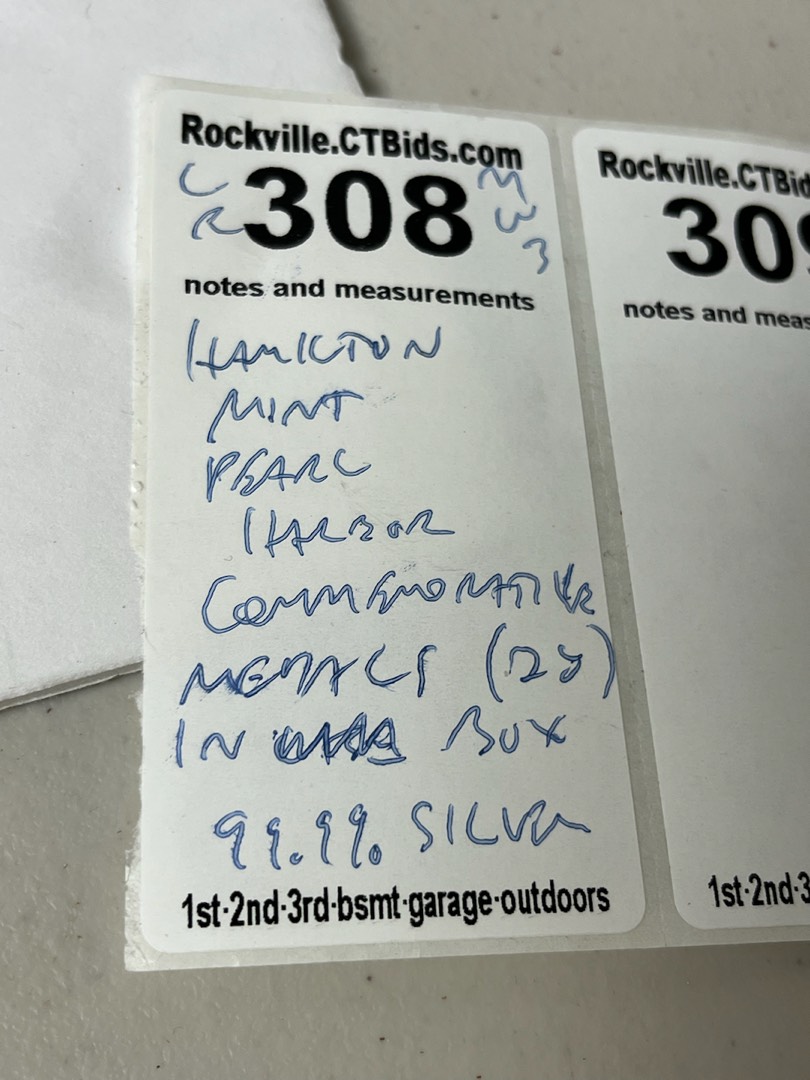 Rockville.CTBids.com
C 308 M
R W
3
notes and measurements
HAMILTON
MINT
PEARL
HARBOR
COMMEMORATIVE
MEDALS
IN BOX
99.9% SILVER
1st·2nd·3rd·bsmt·garage·outdoors
Rockville.CTBid
309
notes and meas
1st·2nd·3